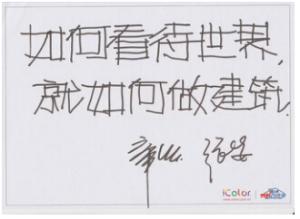 如何看待世界,
就如何做建筑.
iColor